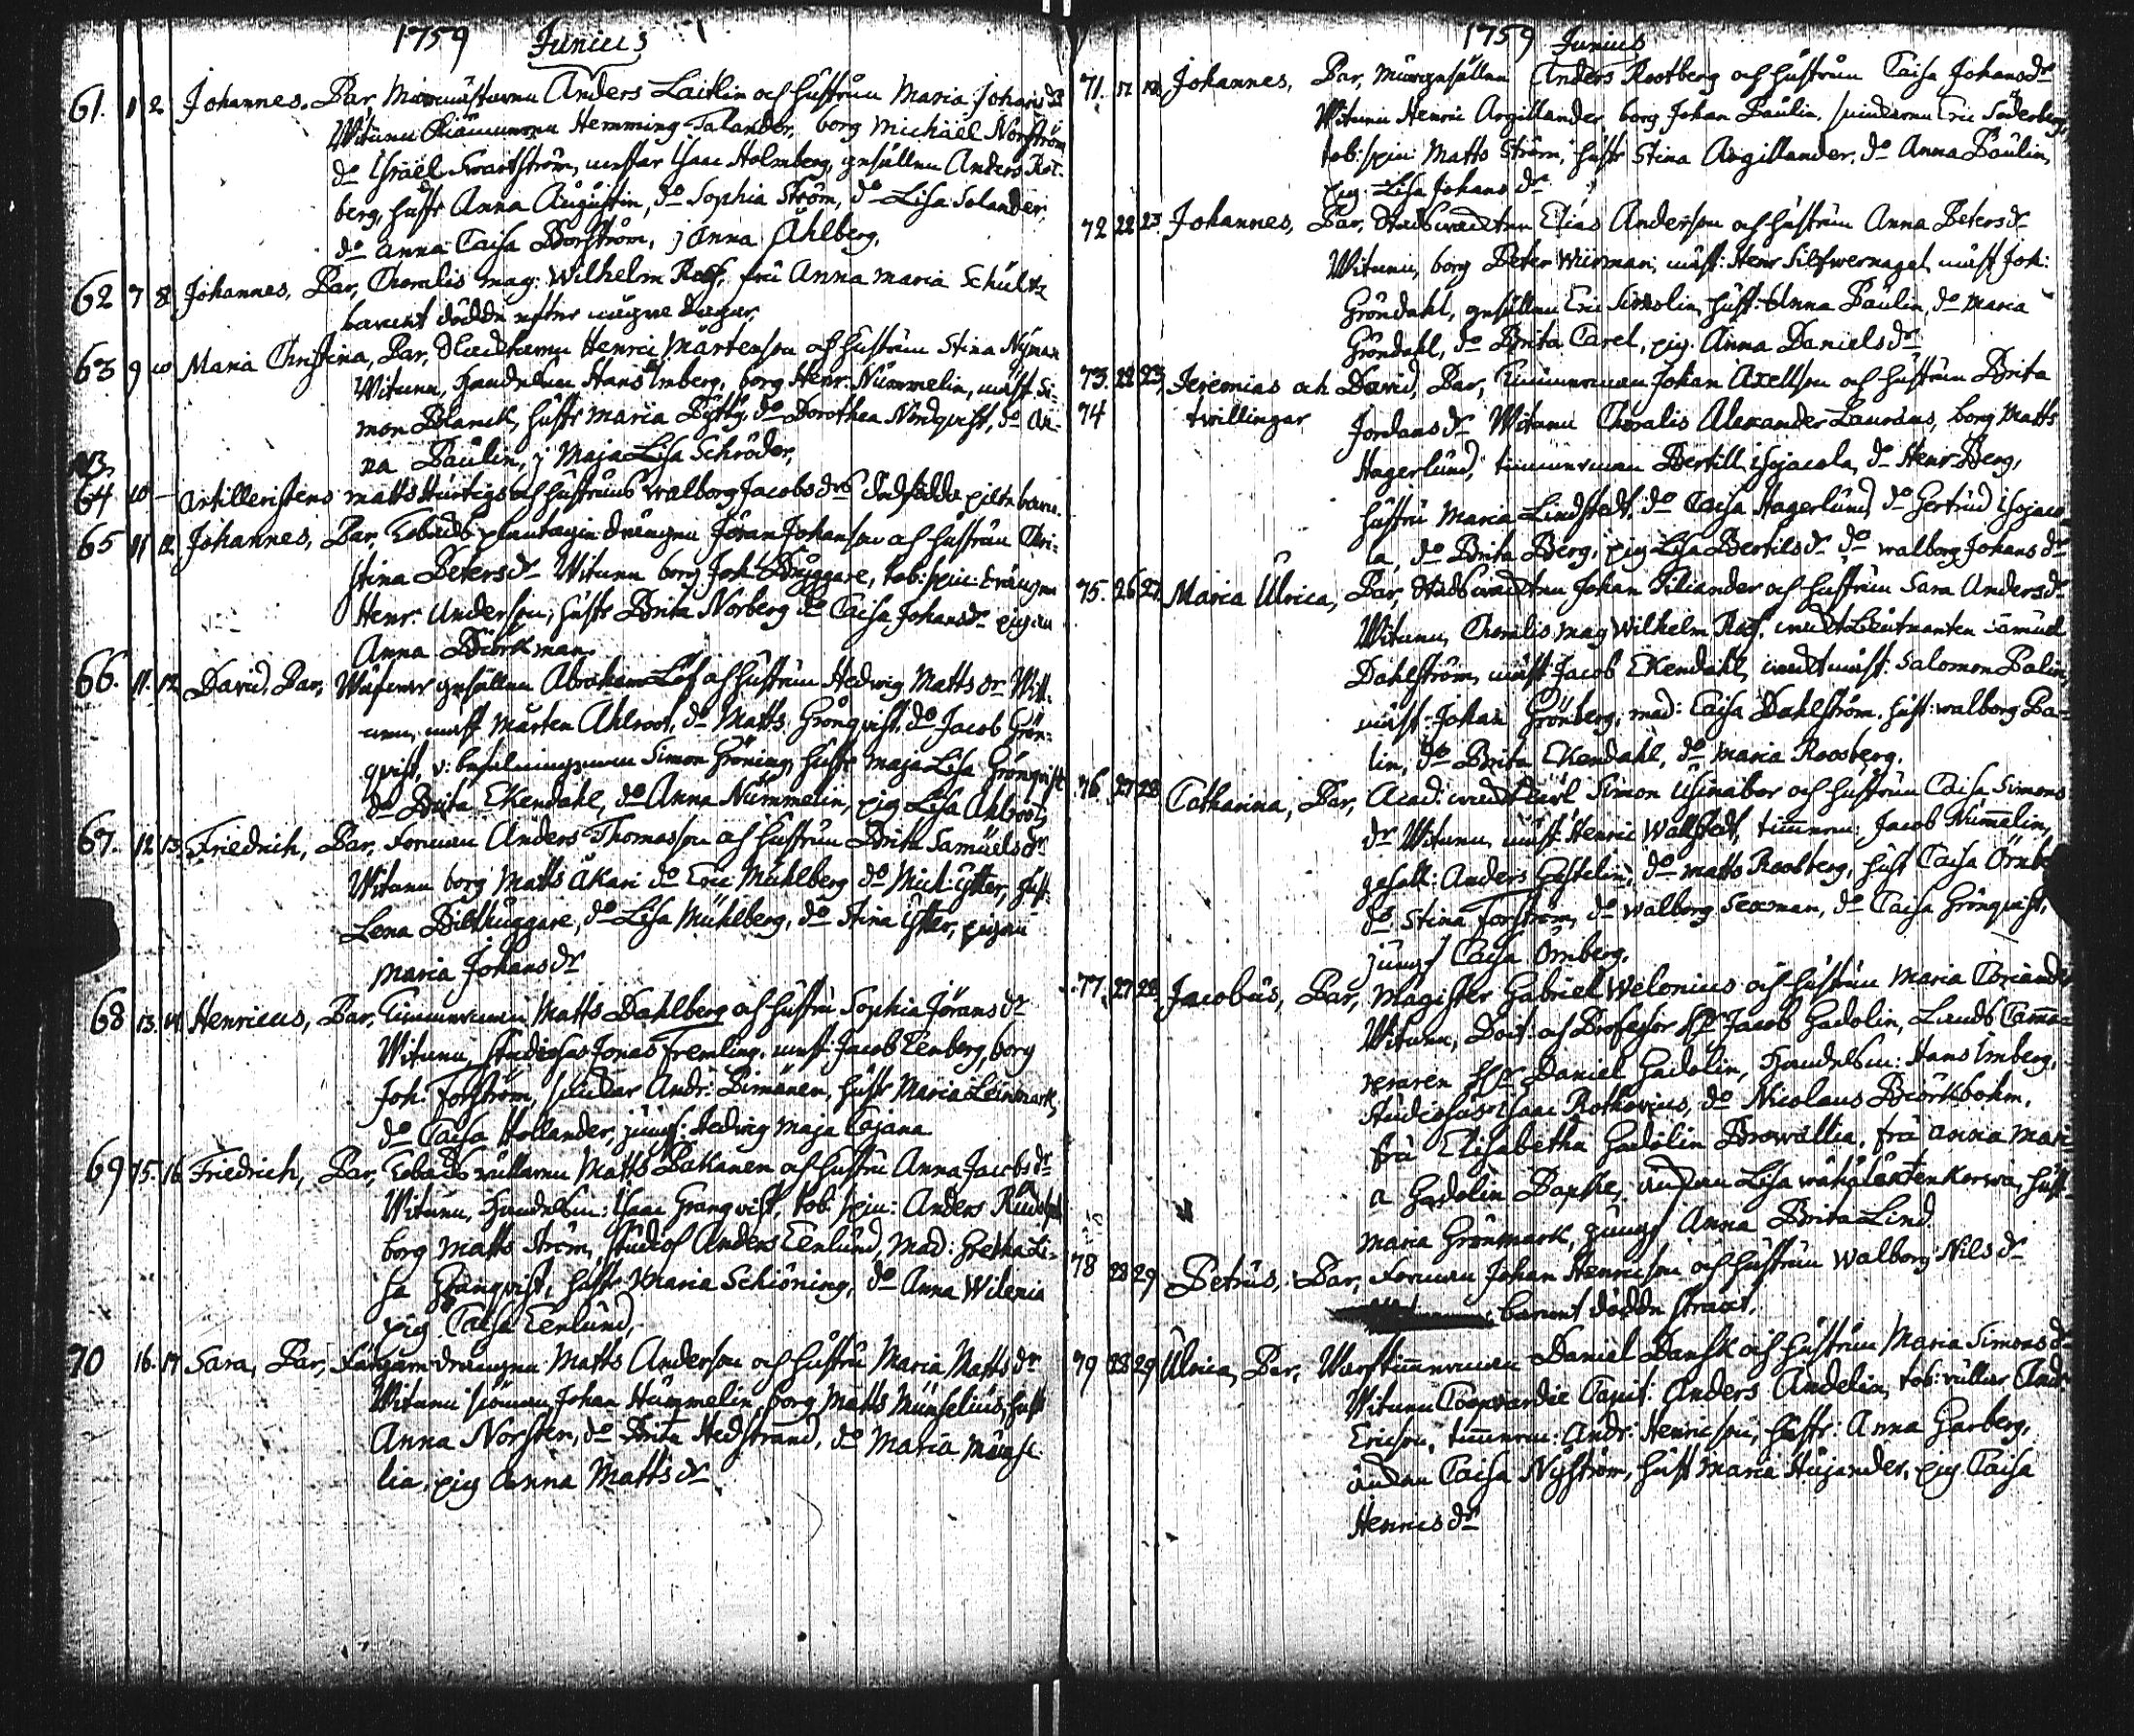 1759 Junius
61. 1 2 Johannes. Par, Murmästaren Anders Laitlin och hustrun Maria Johansdr
Witnen Hemming Talander, borg Michaël Norström
do Israël Swartström, mestar Isaac Holmberg, gesällen Anders Rot-
berg, hustr Anna Augustin, do Sophia Ström, do Lisa Solander,
do Anna Caisa Borström, j Anna Åhlberg.
62 7 8 Johannes, Par, Choralis mag: Wilhelm Ross, fru Anna Maria Schultz
barnet dödde efter några dagar.
63 9 10 Maria Christina, Par, Henric Mårtenson och hustrun Stina Nyman
Witnen, Handelsm Hans Imberg, borg Henr. Nummelin, mäst. Si-
mon Blanck, hustr Maria Pytty, do Dorothea Nordqvist, do An-
na Paulin, j Maja Lisa Schröder,
64 10 - Artilleristens Matts Hurtigs och hustruns Walborg Jacobsdrs dödfödda piltebarn.
65 11 12 Johannes, Par, Tobaks plantagie drängen Jöran Johanson och hustrun Chri-
stina Petersdr Witnen borg Joh Bryggare, tob: spin: drängen
Henr. Anderson, hustr Brita Norberg do Caisa Johansdr pigan
Anna Biörkman.
66. 11. 12 David, Par, gesällen Abraham Löf och hustrun Hedwig Mattsdr Wit-
nen, mäst Mårten Ahlroot, do Matts Grönqvist, do Jacob Grön-
qvist, v: Simon Gröning, hustr Maja Lisa Grönqvist
do Brita Ekendahl, do Anna Nummelin, pig Lisa Ahlroot,
67. 12 13 Friedrich, Par, Forman Anders Thomasson och hustrun Brita Samuelsdr
Witnen borg Matts Akari do Eric Muhlberg do Mich: Ytter, hust:
Lena Bilthuggare, do Lisa Muhlberg, do Stina Ytter, pigan
Maria Johansdr
68 13. 14 Henricus, Par, Timmerman Matts Dahlberg och hustru Sophia Jöransdr
Witnen, Studiosus Jonas Fremling, mäst: Jacob Tenberg, borg
Joh. Forström, Andr: Pimänen, hustr Maria Leinmark,
do Caisa Hollander, jungf: Hedwig Maja Cajana
69 15. 16 Friedrich, Par, Tobaks rullaren Matts Pakanen och hustru Anna Jacobsdr
Witnen, Handelsm: Isaac Granqvist, tob: spin: Anders Rudolph
borg Matts Ström, Studios Anders Eenlund, Mad: Gretha Li-
sa Granqvist, hustr Maria Schiöning, do Anna Wilenia
pig Caisa Eenlund,
70 16. 17 Sara, Par, drängen Matts Anderson och hustru Maria Mattsdr
Witnen siöman Johan Hummelin, borg Matts Munselius, hust
Anna Norsten, do Brita Hedstrand, do Maria Munse-
lia, pig Anna Mattsdr
1759 Junius
71. 17 18 Johannes, Par, Murgesällen Anders Rootberg och hustrun Caisa Johansdr
Witnen Henric Argillander borg Johan Paulin, Eric Söderberg,
tob: spin: Matts Ström, hustr Stina Argillander, do Anna Paulin,
pig Lisa Johansdr
72 22 23 Johannes, Par, Stads Elias Anderson och hustrun Anna Petersdr
Witnen, borg Peter Wiirman, mäst: Henr Silfwernagel mäst Joh:
Gröndahl, gesällen Eric hust: Anna Paulin, do Maria
Gröndahl, do Brita Carel, pig Anna Danielsdr
73. 22 23 Jeremias och David, Par, Timmerman Johan Axellson och hustrun Brita
74 twillingar Jordansdr Witnen Choralis Alexander Laurœus, borg Matts
Hagerlund, timmerman Bertill Isojacola, do Henr Berg,
hustru Maria Lindstedt, do Caisa Hagerlund, do Gertrud Isojaco-
la, do Brita Berg, pig Lisa Bertilsdr do Walborg Johansdr
75. 26 27 Maria Ulrica, Par, Stads Johan Filiander och hustrun Sara Andersdr
Witnen, Choralis mag Wilhelm Ross, Samuel
Dahlström, mäst Jacob Ekendahl, Salomon Palin,
mäst: Johan Grönberg, mad: Caisa Dahlström, hust: Walborg Pa-
lin, do Brita Ekendahl, do Maria Roosberg.
76 27 28 Catharina, Par, Acad: Simon Usinabor och hustrun Caisa Simons
dr Witnen, mäst: Henric Wallstedt, timmerm: Jacob Nummelin,
gesäll: Anders do Matts Roosberg, hust Caisa Örnb
do Stina Forström, do Walborg Sexman, do Caisa Grönqvist,
jungf Caisa Örnberg.
77 27 28 Jacobus, Par, Magister Gabriel Welonius och hustrun Maria Coriander
Witnen, Doct: och Professor Hr Jacob Gadolin, Lands Camme-
reraren Hr Daniel Gadolin, Handelsm: Hans Imberg,
Studiosus Isaac Rothovius, do Nicolaus Biörkbohm,
fru Elisabetha Gadolin Browallia, fru Anna Mari-
a Gadolin Papke, änkan Lisa hust-
Maria Grönmark, jungf Anna Brita Lind.
78 28 29 Petrus, Par, Forman Johan Henricson och hustrun Walborg Nilsdr
barnet dödde straxt.
79 28 29 Ulrica, Par, Warftimmerman Daniel Dansk och hustrun Maria Simonsdr
Witnen Coopvardie Capit: Anders Andelin, tob: rullar And
Ericson, timmerm: Andr: Henricson, hustr: Anna Garberg,
änkan Caisa Nyström, hust Maria Hujander, pig Caisa
Henricsdr